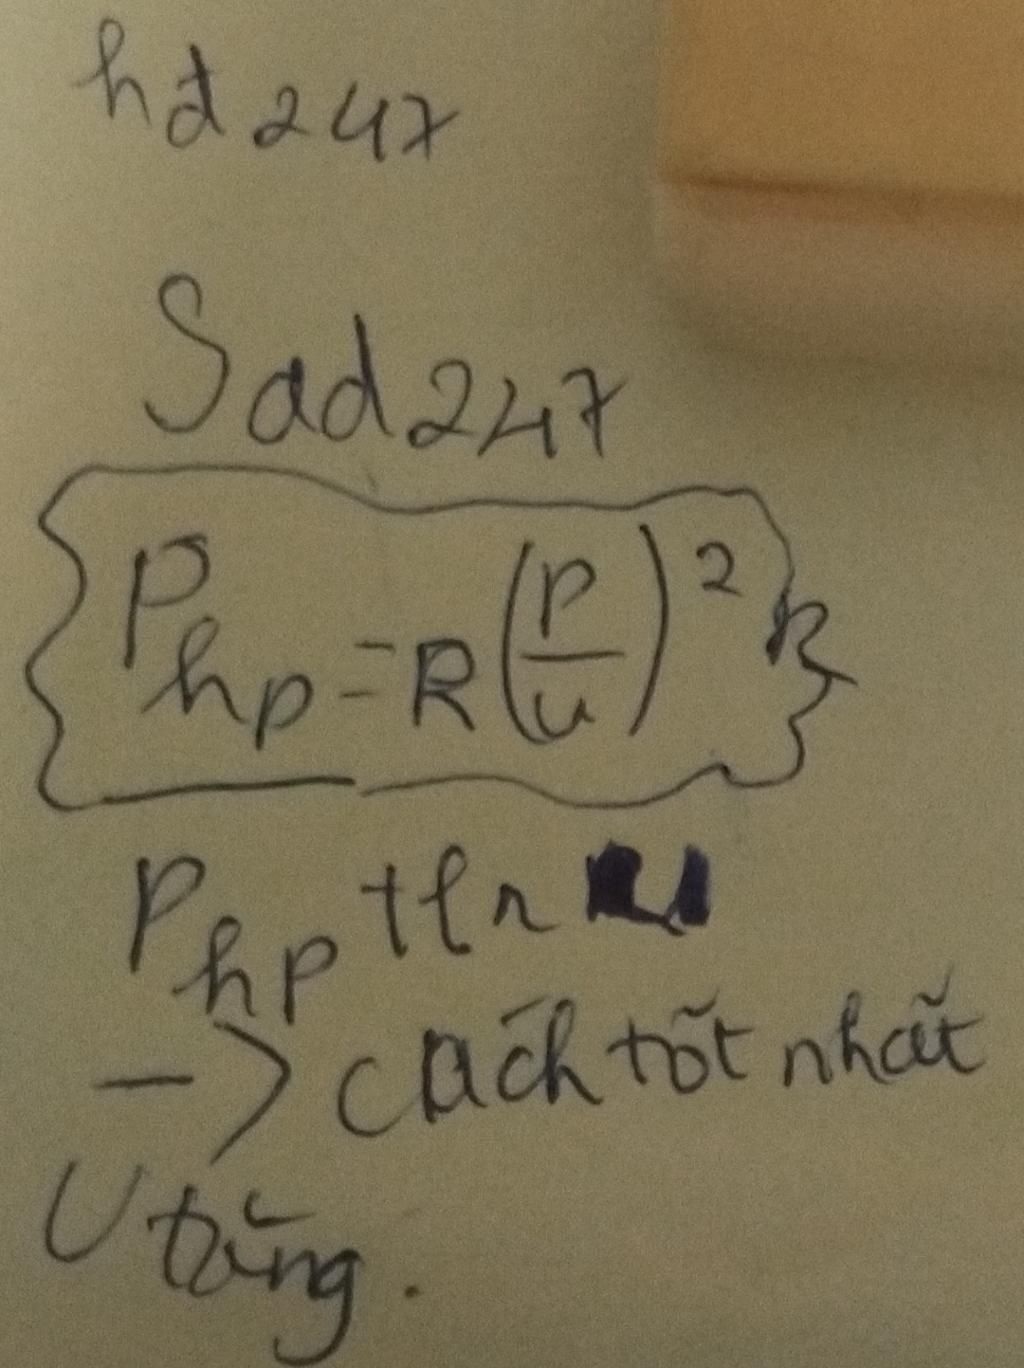 hđ247
Sad247
P hp = R (P/u)² R
P hp tln
-> Cách tốt nhất
U tăng.